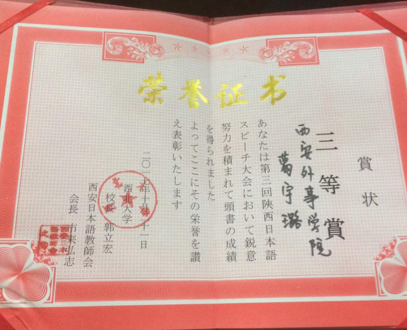 荣誉证书
賞状
三等賞
西安外事学院
葛宇璐
あなたは第三回陕西日本語
スピーチ大会において鋭意
努力を積まれて頭書の成績
を得られました
よってここにその栄誉を讃
え表彰いたします
校長 郭立宏
西安日本語教師会
会長